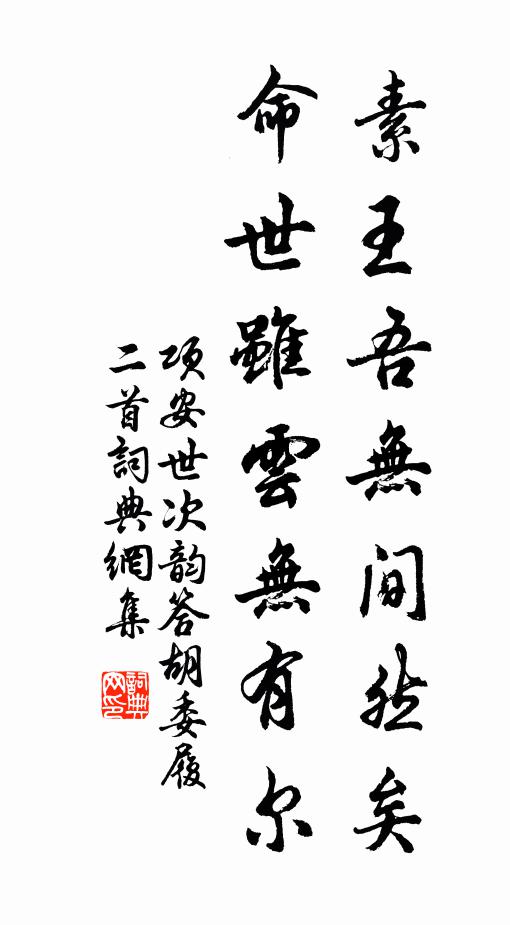 素王吾無間然矣
命世雖雲無有尔
项安世次韵答胡委履
二首詞典網集
詞典网印